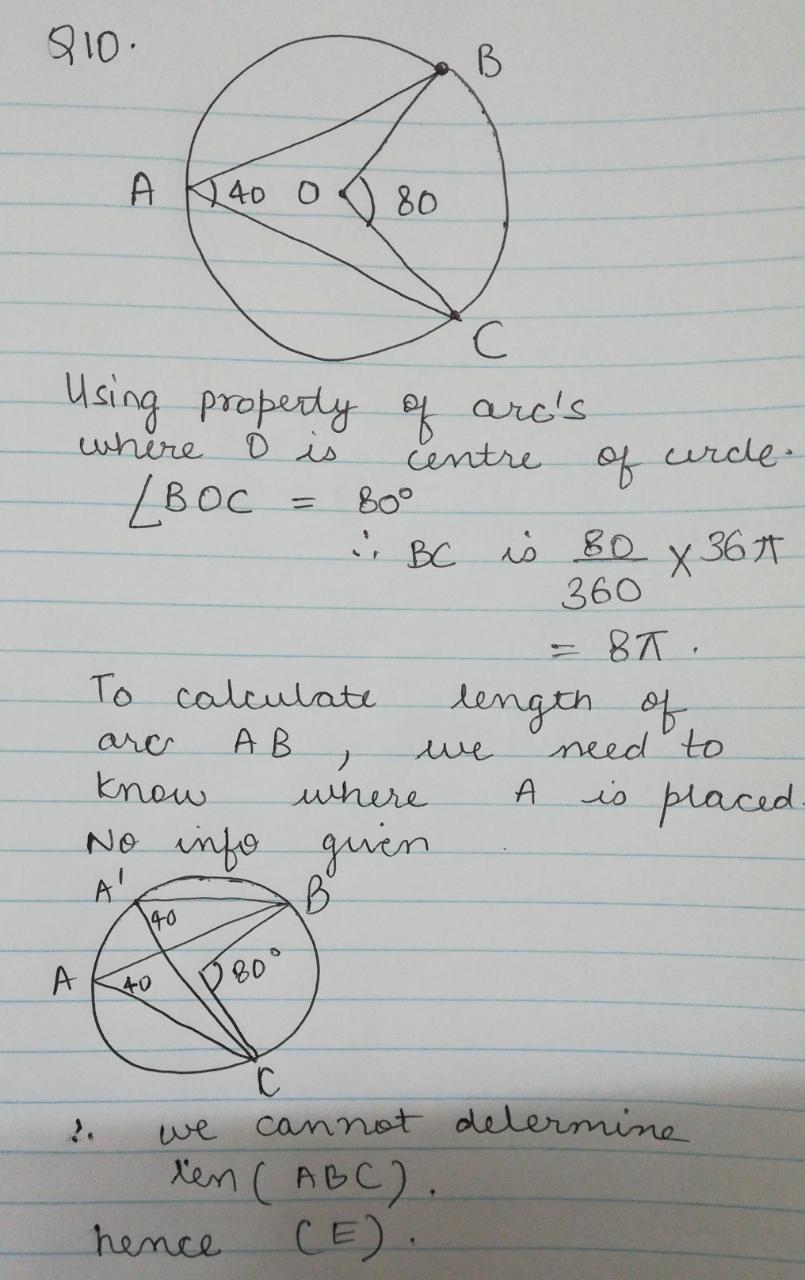 Q10.
B
A 40 O 80
C
Using property of arc's
where O is centre of circle.
∠BOC = 80°
∴ BC is 80/360 × 36π
= 8π.
To calculate length of
arc AB, we need to
know where A is placed.
No info given
A' B
40
A 40 80°
C
∴ we cannot determine
len(ABC).
hence (E).